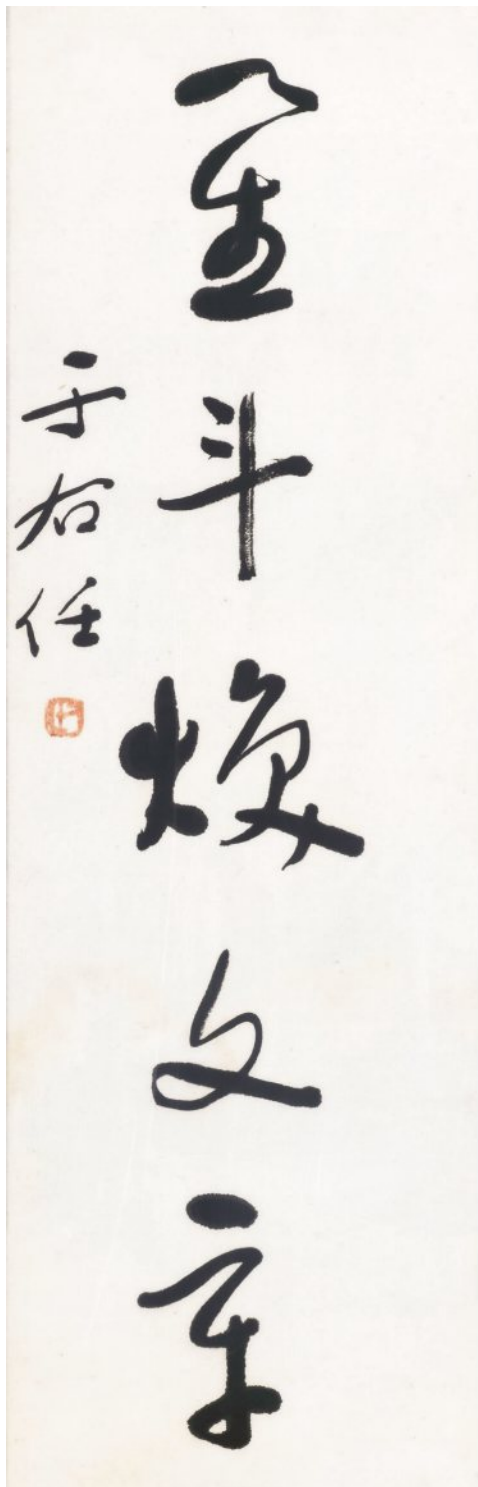 星斗煥文章
于右任